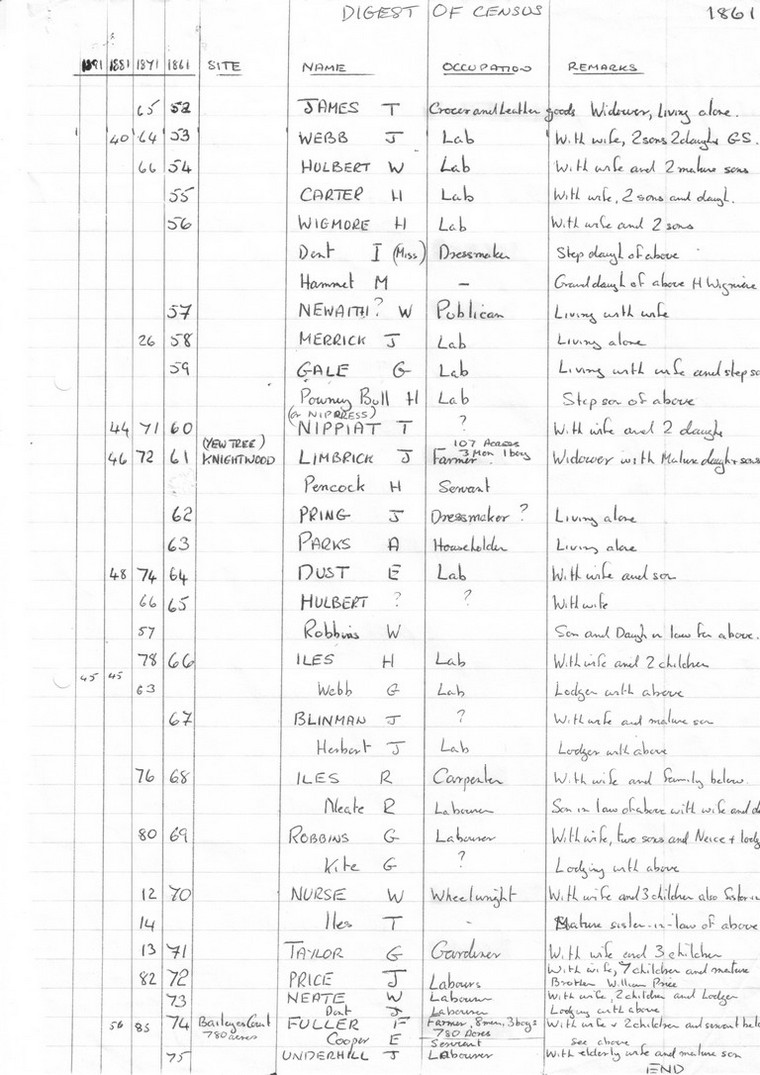 DIGEST OF CENSUS 1861
1891 1881 1871 1861 SITE NAME OCCUPATION REMARKS
65 52 JAMES T Grocer and Leather goods Widower, Living alone.
40 64 53 WEBB J Lab With wife, 2 sons 2 daughs GS.
66 54 HULBERT W Lab With wife and 2 mature sons
55 CARTER H Lab With wife, 2 sons and daugh.
56 WIGMORE H Lab With wife and 2 sons
Dent I (Miss) Dressmaker Step daugh of above
Hammet M - Grand daugh of above H Wigmore
57 NEWAITH? W Publican Living with wife
26 58 MERRICK J Lab Living alone
59 GALE G Lab Living with wife and step so
Powney Bull H Lab Step son of above
(or NIPPRESS)
44 71 60 NIPPIAT T ? With wife and 2 daughs
(YEW TREE) 107 Acres
46 72 61 KNIGHTWOOD LIMBRICK J Farmer 3 Men 1 boy Widower with Mature daugh + sons
Pencock H Servant
62 PRING J Dressmaker ? Living alone
63 PARKS A Householder Living alone
48 74 64 DUST E Lab With wife and son
66 65 HULBERT ? ? With wife
57 Robbins W Son and Daugh in law for above.
78 66 ILES H Lab With wife and 2 children
45 45 63 Webb G Lab Lodger with above
67 BLINMAN J ? With wife and mature son
Herbert J Lab Lodger with above
76 68 ILES R Carpenter With wife and family below.
Neate R Labourer Son in law of above with wife and d
80 69 ROBBINS G Labourer With wife, two sons and Neice + lodg
Kite G ? Lodging with above
12 70 NURSE W Wheelwright With wife and 3 children also Sister in
14 Iles T - Mature sister-in-law of above
13 71 TAYLOR G Gardiner With wife and 3 children
82 72 PRICE J Labours With wife, 7 children and mature
Brother William Price
73 NEATE W Labourer With wife, 2 children and Lodger
Dent J Labourer Lodging with above
56 85 74 Baileys Court FULLER F Farmer, 8 men, 3 boys With wife + 2 children and servant bel
780 acres 780 Acres
Cooper E Servant see above
75 UNDERHILL J Labourer With elderly wife and mature son
END